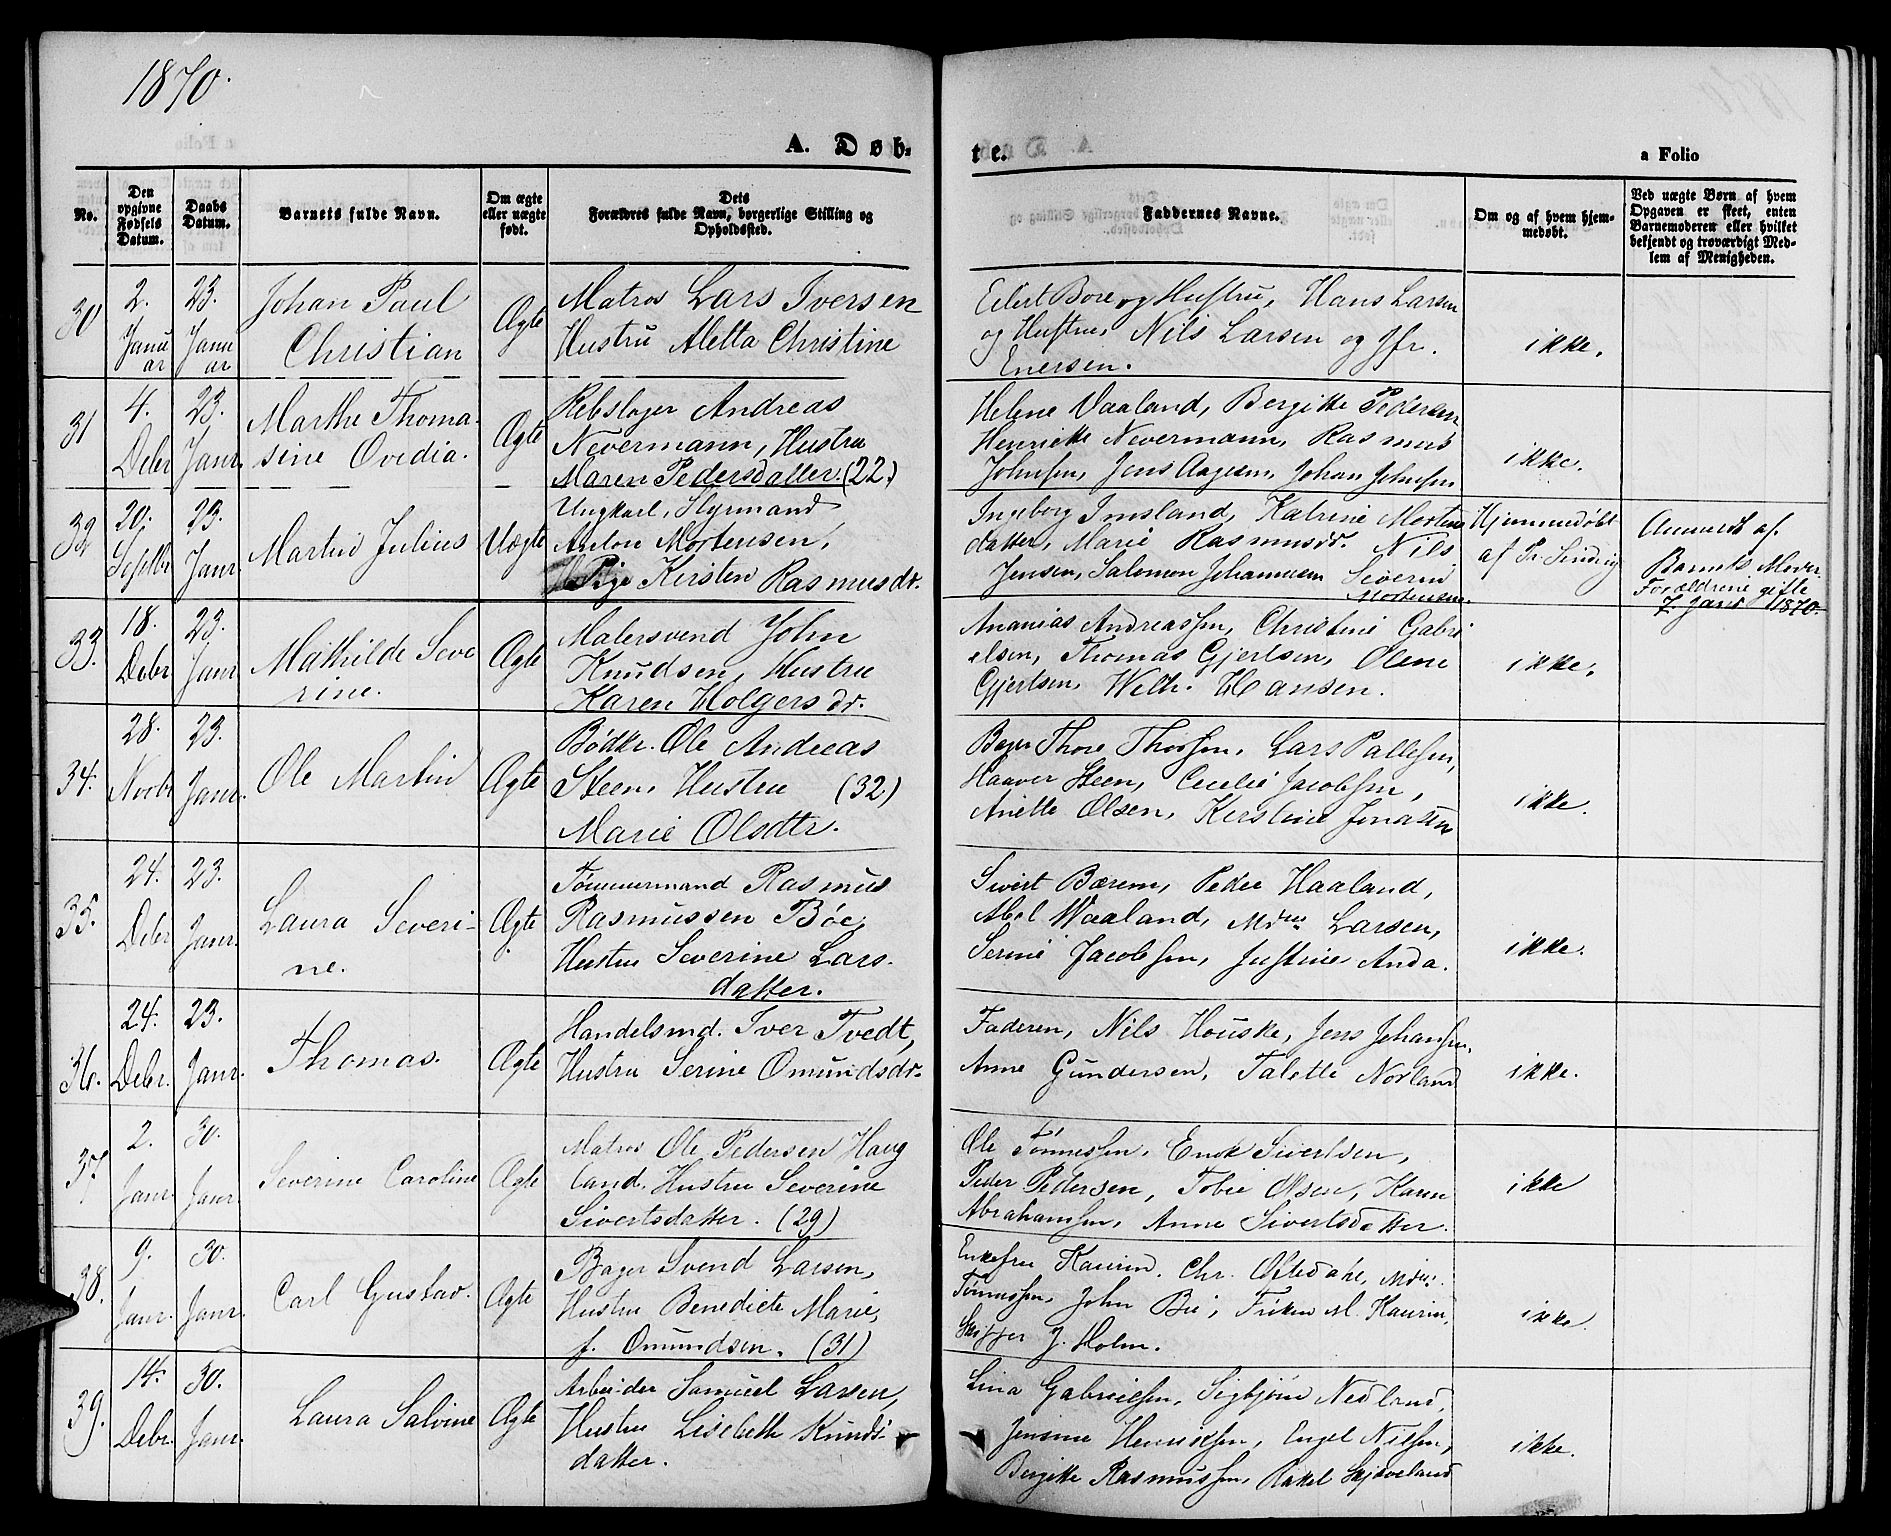 1870.
A. Døb-
te.
a Folio
No.
Den
opgivne
Fødsels
Datum.
Daabs
Datum.
Barnets fulde Navn.
Om ægte
eller uægte
født.
Dets
Forældres fulde Navn, borgerlige Stilling og
Opholdssted.
Faddernes Navne.
Om og af hvem hjem-
medøbt.
Ved uægte Børn af hvem
Opgaven er skeet, enten
Barnemoderen eller hvilket
bekjendt og troværdigt Med-
lem af Menigheden.
30
2.
Janu
ar
23.
Janu
ar
Johan Paul
Christian
Ægte
Matros Lars Iversen
Hustru Aletta Christine
Eilert Bore og Hustru, Hans Larsen
og Hustru, Nils Larsen og Jfr.
Enersen.
ikke.
31
4.
Debr
23.
Janr.
Marthe Thoma-
sine Ovedia.
Ægte
Rebslager Andreas
Nevermann, Hustru
Maren Pedersdatter. (22)
Helene Vaaland, Bergitte Pedersen
Henriette Nevermann, Rasmus
Johnsen, Jens Aagesen, Johan Johnsen
ikke.
32
20.
23.
Janr.
Martin Julius
Uægte
Ungkarl, Styrmand
Anton Mortensen,
Pige Kirsten Rasmusdr.
Ingeborg Imsland, Katrine Mortens
datter, Marie Rasmusdr. Nils
Jensen, Salomon Johannesen Severin
Mortensen.
Hjemmedøbt
af Pr. Sinding
Anmeldt af
Barnets Moder.
Forældrene gifte
7. Janr 1870.
33.
18.
Debr
23.
Janr
Mathilde Seve
rine.
Ægte
Malersvend John
Knudsen, Hustru
Karen Holgersdr.
Ananias Andreassen, Christine Gabri
elsen, Thomas Gjertsen, Olene
Gjertsen, Wilh. Hansen.
ikke.
34.
28.
Novbr
23.
Janr.
Ole Martin
Ægte
Bødkr. Ole Andreas
Steen, Hustru (32)
Marie Olsdtr.
Bager Thore Thorsen, Lars Pallesen,
Haaver Steen, Cecilie Jacobsen,
Anette Olsen, Kerstine
ikke.
35.
24.
Debr
23.
Janr.
Laura Severi-
ne.
Ægte
Tømmermand Rasmus
Rasmussen Bøe,
Hustru Severine Lars-
datter.
Sivert Bærem, Peder Haaland,
Abel Waaland, Mdm Larsen,
Serine Jacobsen, Justine Anda.
ikke.
36.
24.
Debr.
23.
Janr.
Thomas.
Ægte
Handelsmd. Iver Tvedt,
Hustru Serine Omundsdr.
Faderen, Nils Houske, Jens Johansen,
Anne Gundersen, Talette Norland
ikke.
37.
2.
Janr.
30.
Janr.
Severine Caroline
Ægte
Matros Ole Pedersen Haug
land. Hustru Severine
Sivertsdatter. (29)
Ole Tønnessen, Enok Sivertsen,
Peder Pedersen, Tobie Olsen, Karen
Abrahamsen, Anne Sivertsdatter.
ikke
38.
9.
Janr.
30.
Janr.
Carl Gustav.
Ægte
Bager Svend Larsen,
Hustru Benedicte Marie,
f. Omundsen. (31)
Enkefru Kaurin. Chr. Oftedahl, Mdm.
Tønnessen, John Bie, Frøken M. Kaurin,
Skipper J. Holm.
ikke.
39.
14.
Debr.
30.
Janr.
Laura Salvine
Ægte
Arbeider Samuel Larsen,
Hustru Lisebeth Knuds-
datter.
Lina Gabrielsen, Sigbjørn Nedland,
Jensine Henriksen, Engel Nilsen,
Bergitte Rasmussen, Rakel Skjæveland
ikke.